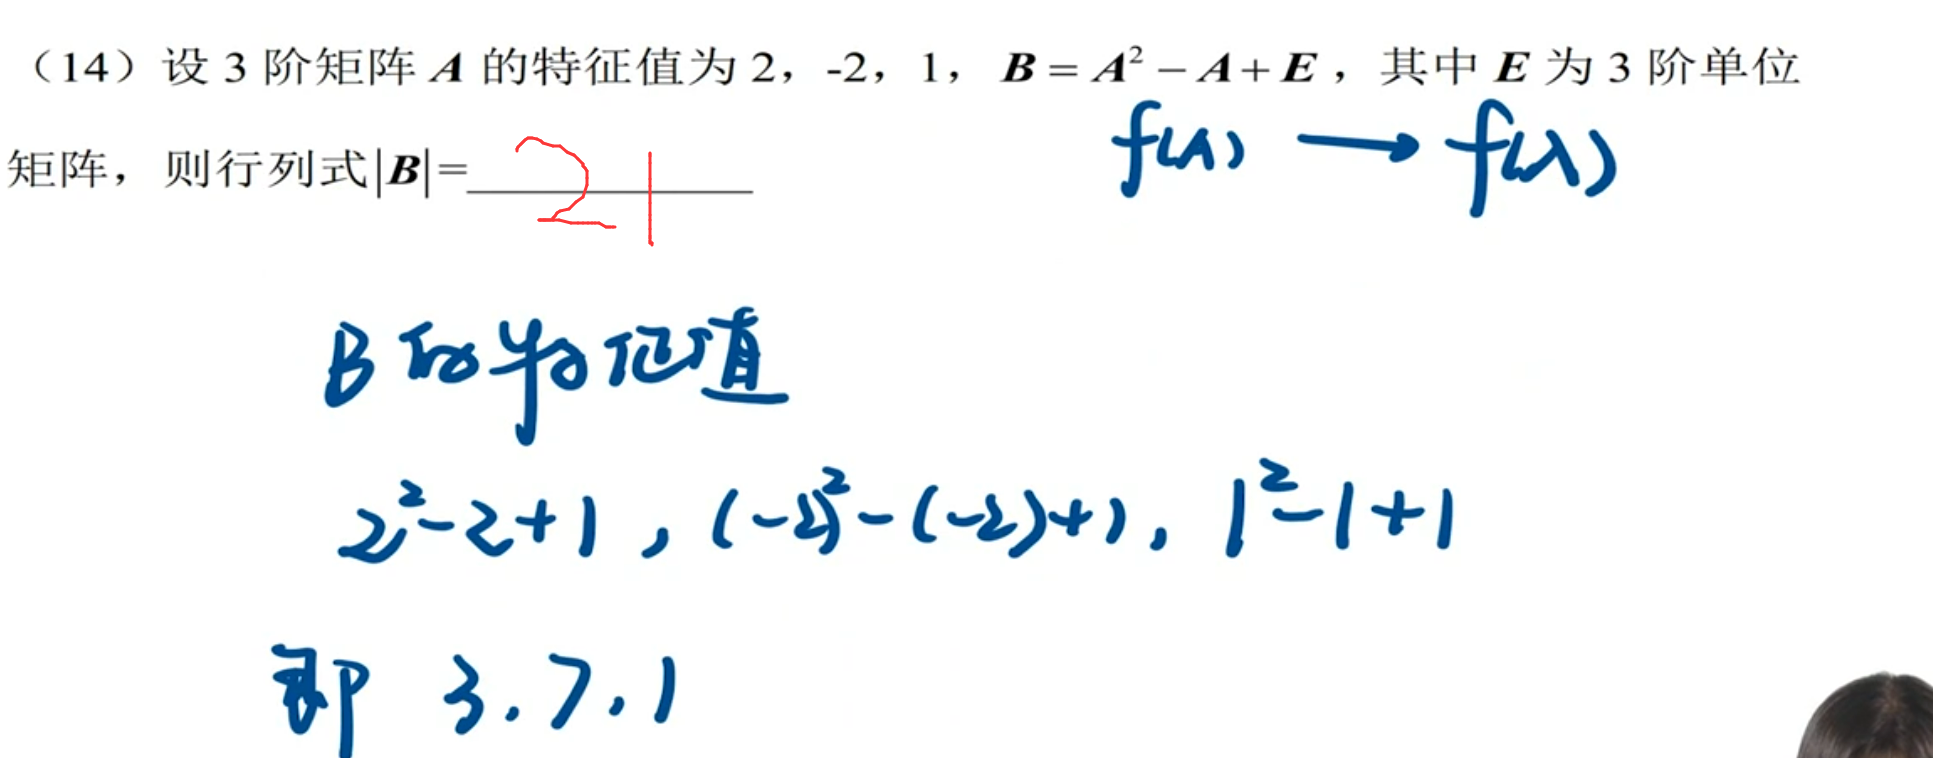 （14）设 3 阶矩阵 A 的特征值为 2，-2，1，B = A² − A + E，其中 E 为 3 阶单位
矩阵，则行列式|B|=21
f(A) → f(λ)
B的特征值
2²-2+1，(-2)²-(-2)+1，1²-1+1
即 3.7.1